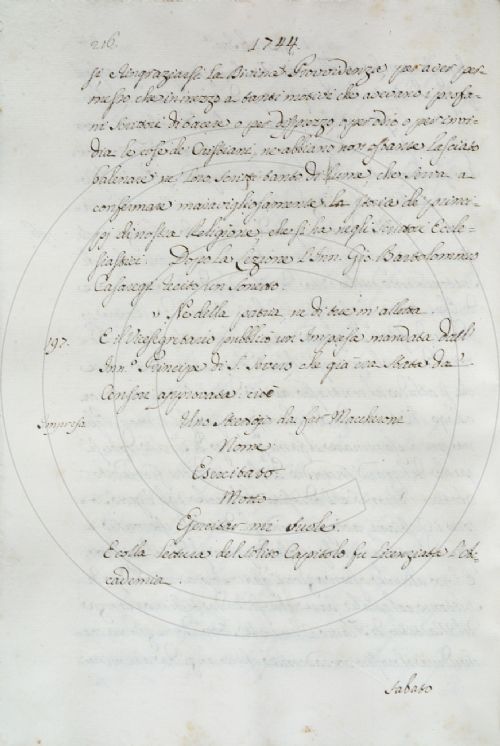 216. 1744
si ringraziarsi la Divina Provvidenza per aver per
messo che in mezzo a tanti motivi che avevano i profa-
ni Scrittori di tacere o per disprezzo o per odio o per invi-
dia le cose de Cristiani, ne abbiano non ostante lasciato
balenare ne loro scritti tanto di lume che serva a
confermare maravigliosamente la storia de princi-
pj di nostra Religione che si ha negli Scrittori Eccle-
siastici. Dopo la Lezione l'Inn. Gio Bartolommeo
Casaregi recitò un Sonetto.
" Ne della patria ne di te m'alletta.
197. E il Vicesegretario pubblicò un' Impresa mandata dall'
Inn.º Principe di S. Severo che già era stata da
Censori approvata cioè
Impresa Uno da far Maccheroni
Nome
Esercitato
Motto
Esercitar mi suole.
E colla lettura del solito Capitolo fu licenziata l'Ac-
cademia.
Sabato